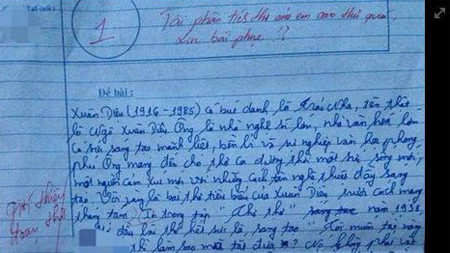 1
Tài phân tích thơ của em cao thủ quá,
xin bái phục !?
Đề bài:
Xuân Diệu (1916 - 1985) có bút danh là Trảo Nha, tên thật
là Ngô Xuân Diệu. Ông là nhà nghệ sĩ lớn, nhà văn hóa lớn
có sức sáng tạo mãnh liệt, bền bỉ và sự nghiệp văn học phong
phú. Ông mang đến cho thơ ca đương thời một sức sống mới,
một nguồn cảm xúc mới với những cách tân nghệ thuật đầy sáng
tạo. Vội vàng là bài thơ tiêu biểu của Xuân Diệu trước cách mạng
tháng tám. In trong tập "Thơ thơ" năm 1938,
đầu bài thơ hết sức là sáng tạo "Tôi muốn tắt nắng
thì làm sao mà tắt được? Nó không phải cái
giới thiệu